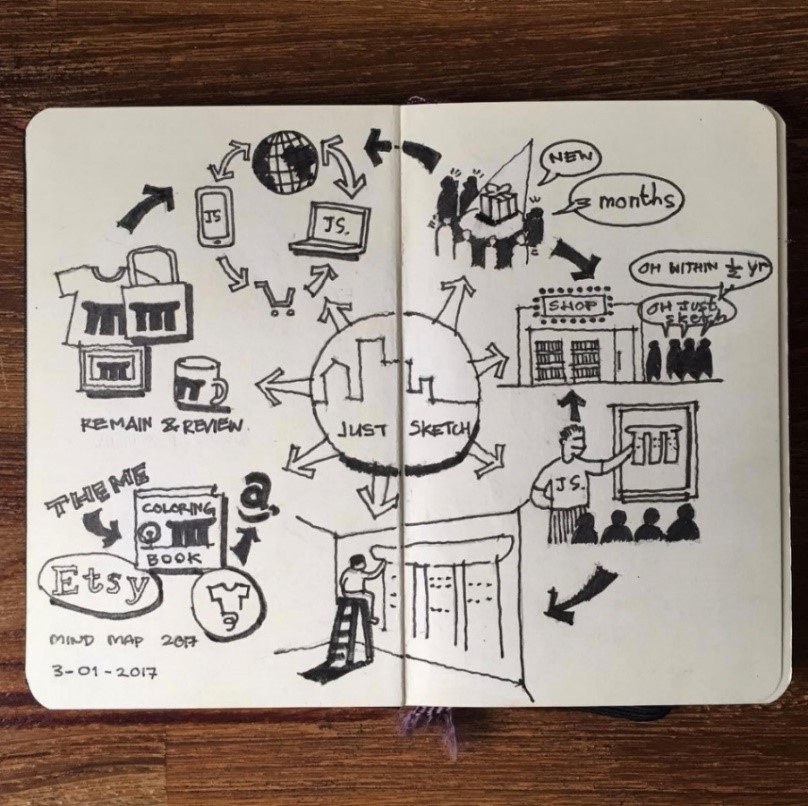 JS
JS.
NEW
3 months
OH WITHIN ½ yr
SHOP
OH JUST
sketch
REMAIN & REVIEW.
JUST SKETCH
THEME
COLORING
BOOK
@
Etsy
JS.
MIND MAP 2017
3-01-2017